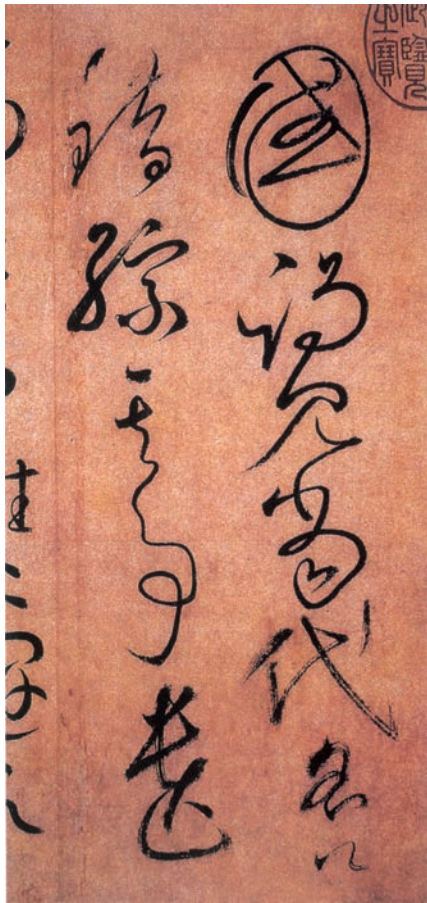 國謁見當代名公
錯綜其事遺